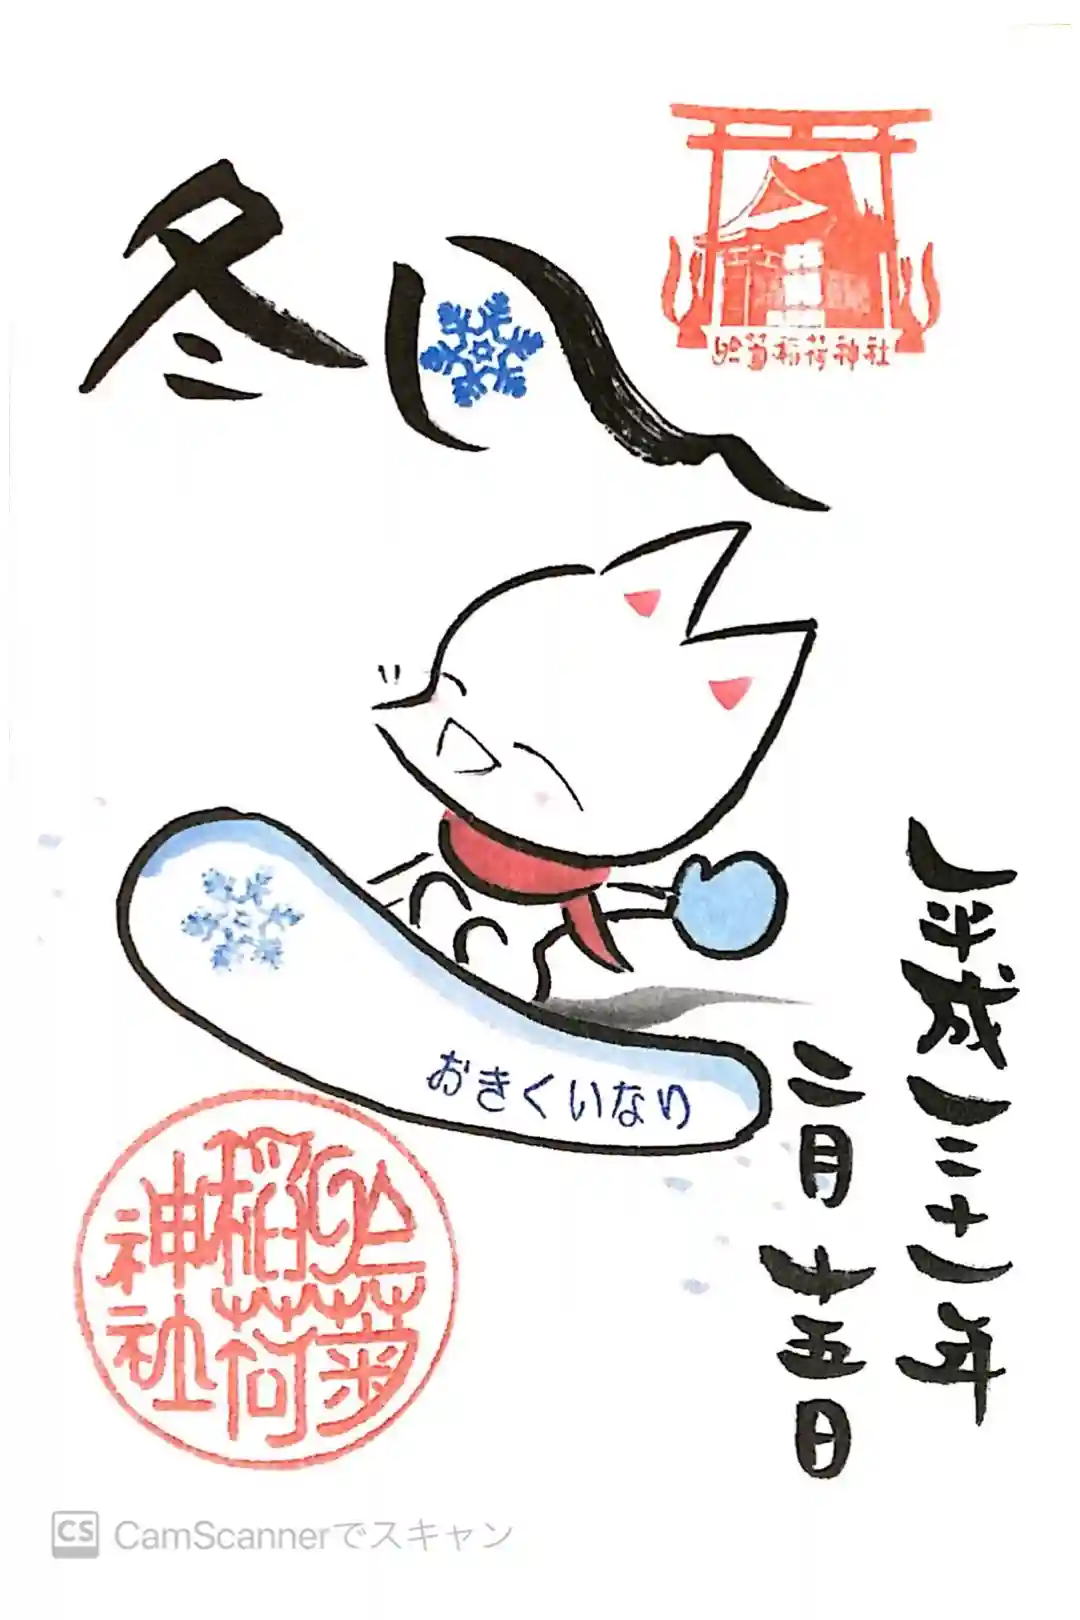 冬
於菊稲荷神社
おきくいなり
平成三十一年
二月十五日
於菊
稲荷
神社
CS CamScannerでスキャン